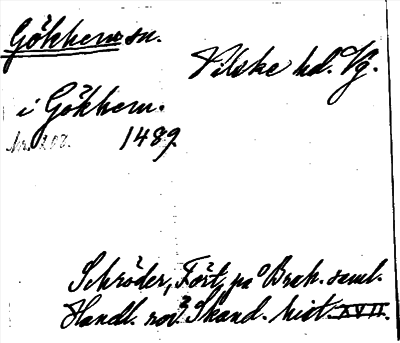 Gökhem sn.
Vilske hd. Vg.
i Gökhem.
1489.
Schröder, Fört. på Brah. saml.
Handl. rör. Skand. hist. XVII.